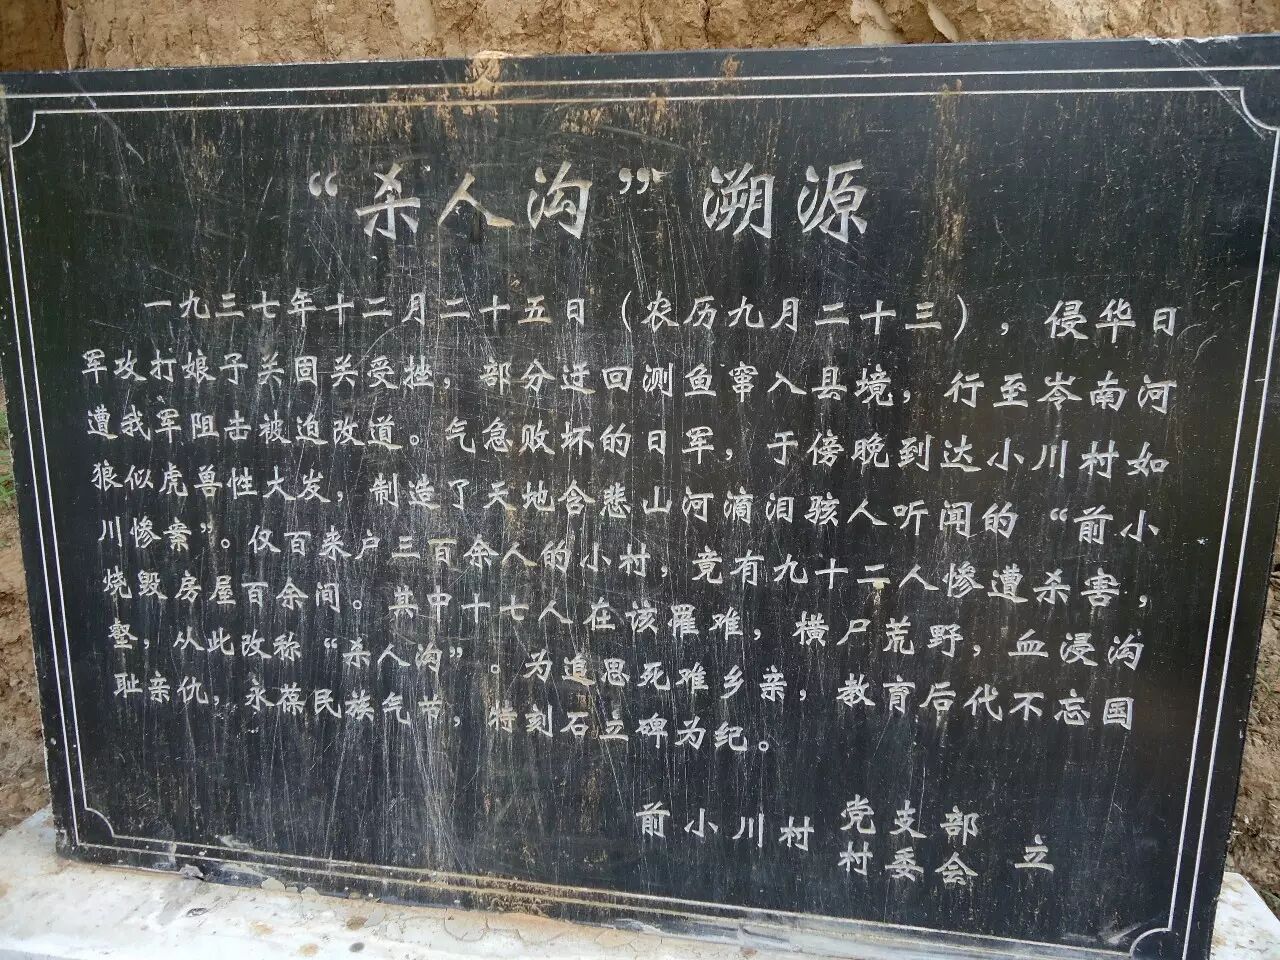 “杀人沟”溯源
一九三七年十二月二十五日（农历九月二十三），侵华日
军攻打娘子关固关受挫，部分迂回测鱼窜入县境，行至岺南河
遭我军阻击被迫改道。气急败坏的日军，于傍晚到达小川村如
狼似虎兽性大发，制造了天地含悲山河滴泪骇人听闻的“前小
川惨案”。仅百来户三百余人的小村，竟有九十二人惨遭杀害，
烧毁房屋百余间。其中十七人在该罹难，横尸荒野，血浸沟
壑，从此改称“杀人沟”。为追思死难乡亲，教育后代不忘国
耻亲仇，永葆民族气节，特刻石立碑为纪。
前小川村 党支部 立
村委会